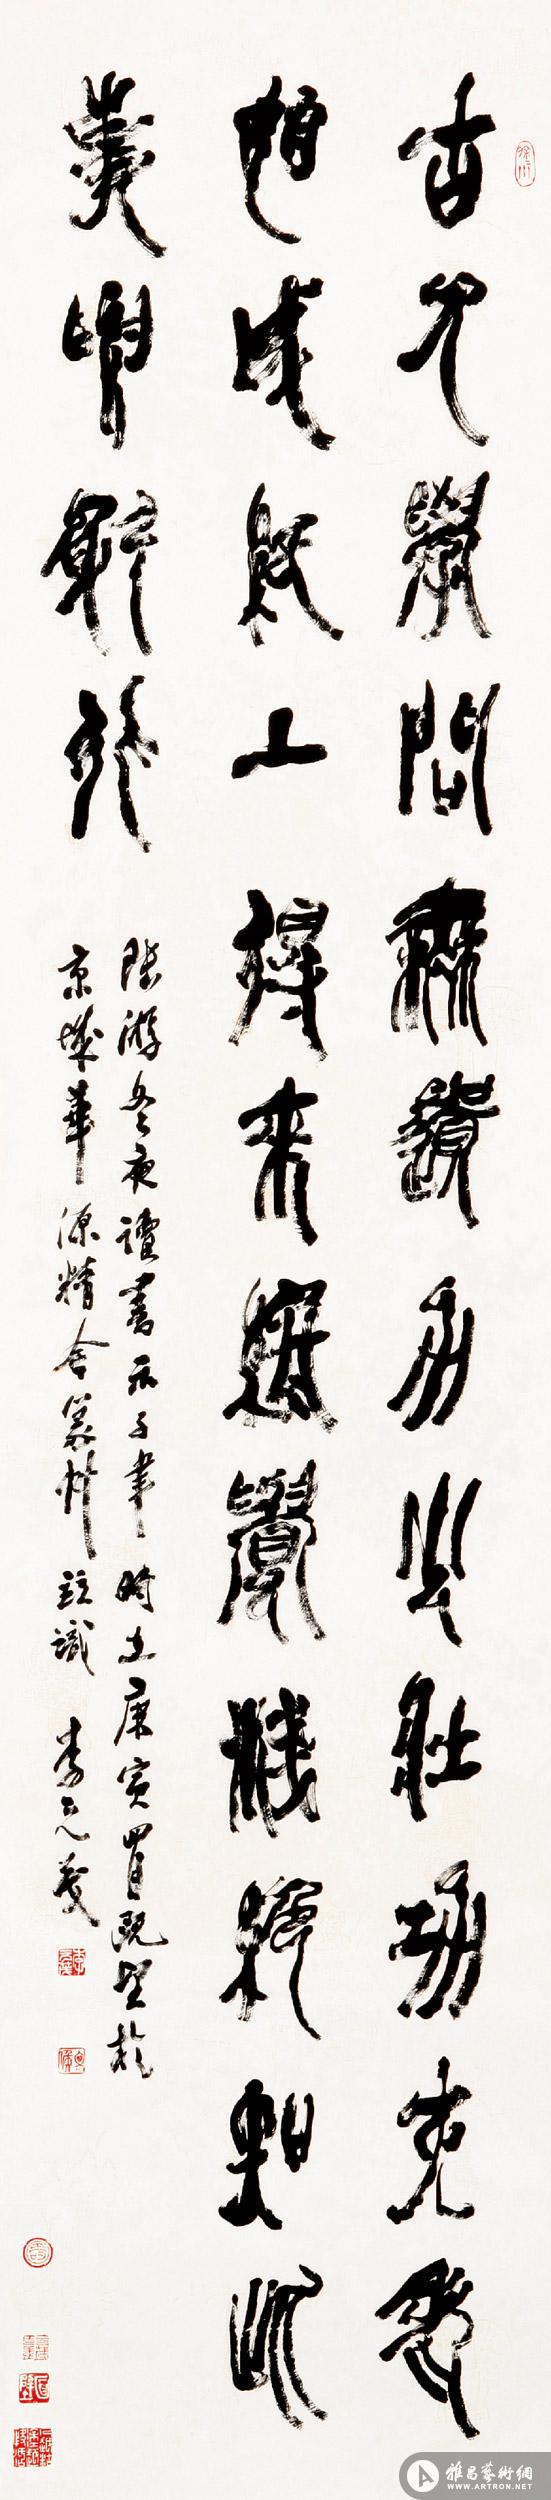 古人學問無遺力少壯功夫老
始成紙上得來終覺淺絕知此
事要躬行
陸游冬夜讀書示子聿時在庚寅四月既望於
京城華源精舍篆竹並識李元茂
雅昌藝術網
WWW.ARTRON.NET